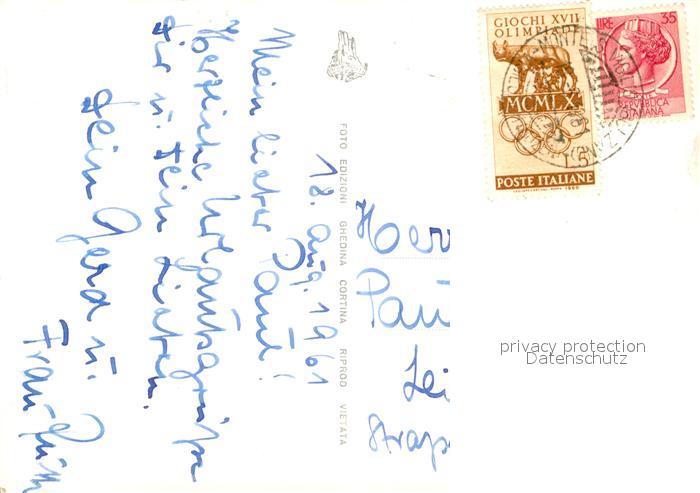 18. Aug. 1961
Mein lieber Paul!
Herzliche Urlaubsgrüße
dir u. dein Lieben.
dein Gerd u.
Frau Ruth
FOTO EDIZIONI GHEDINA CORTINA RIPROD VIETATA
Herr
Pau
Lei
Strap
GIOCHI XVII
OLIMPIADE
MCMLX
POSTE ITALIANE
1960
LIRE 35
REPUBBLICA
ITALIANA
privacy protection
Datenschutz